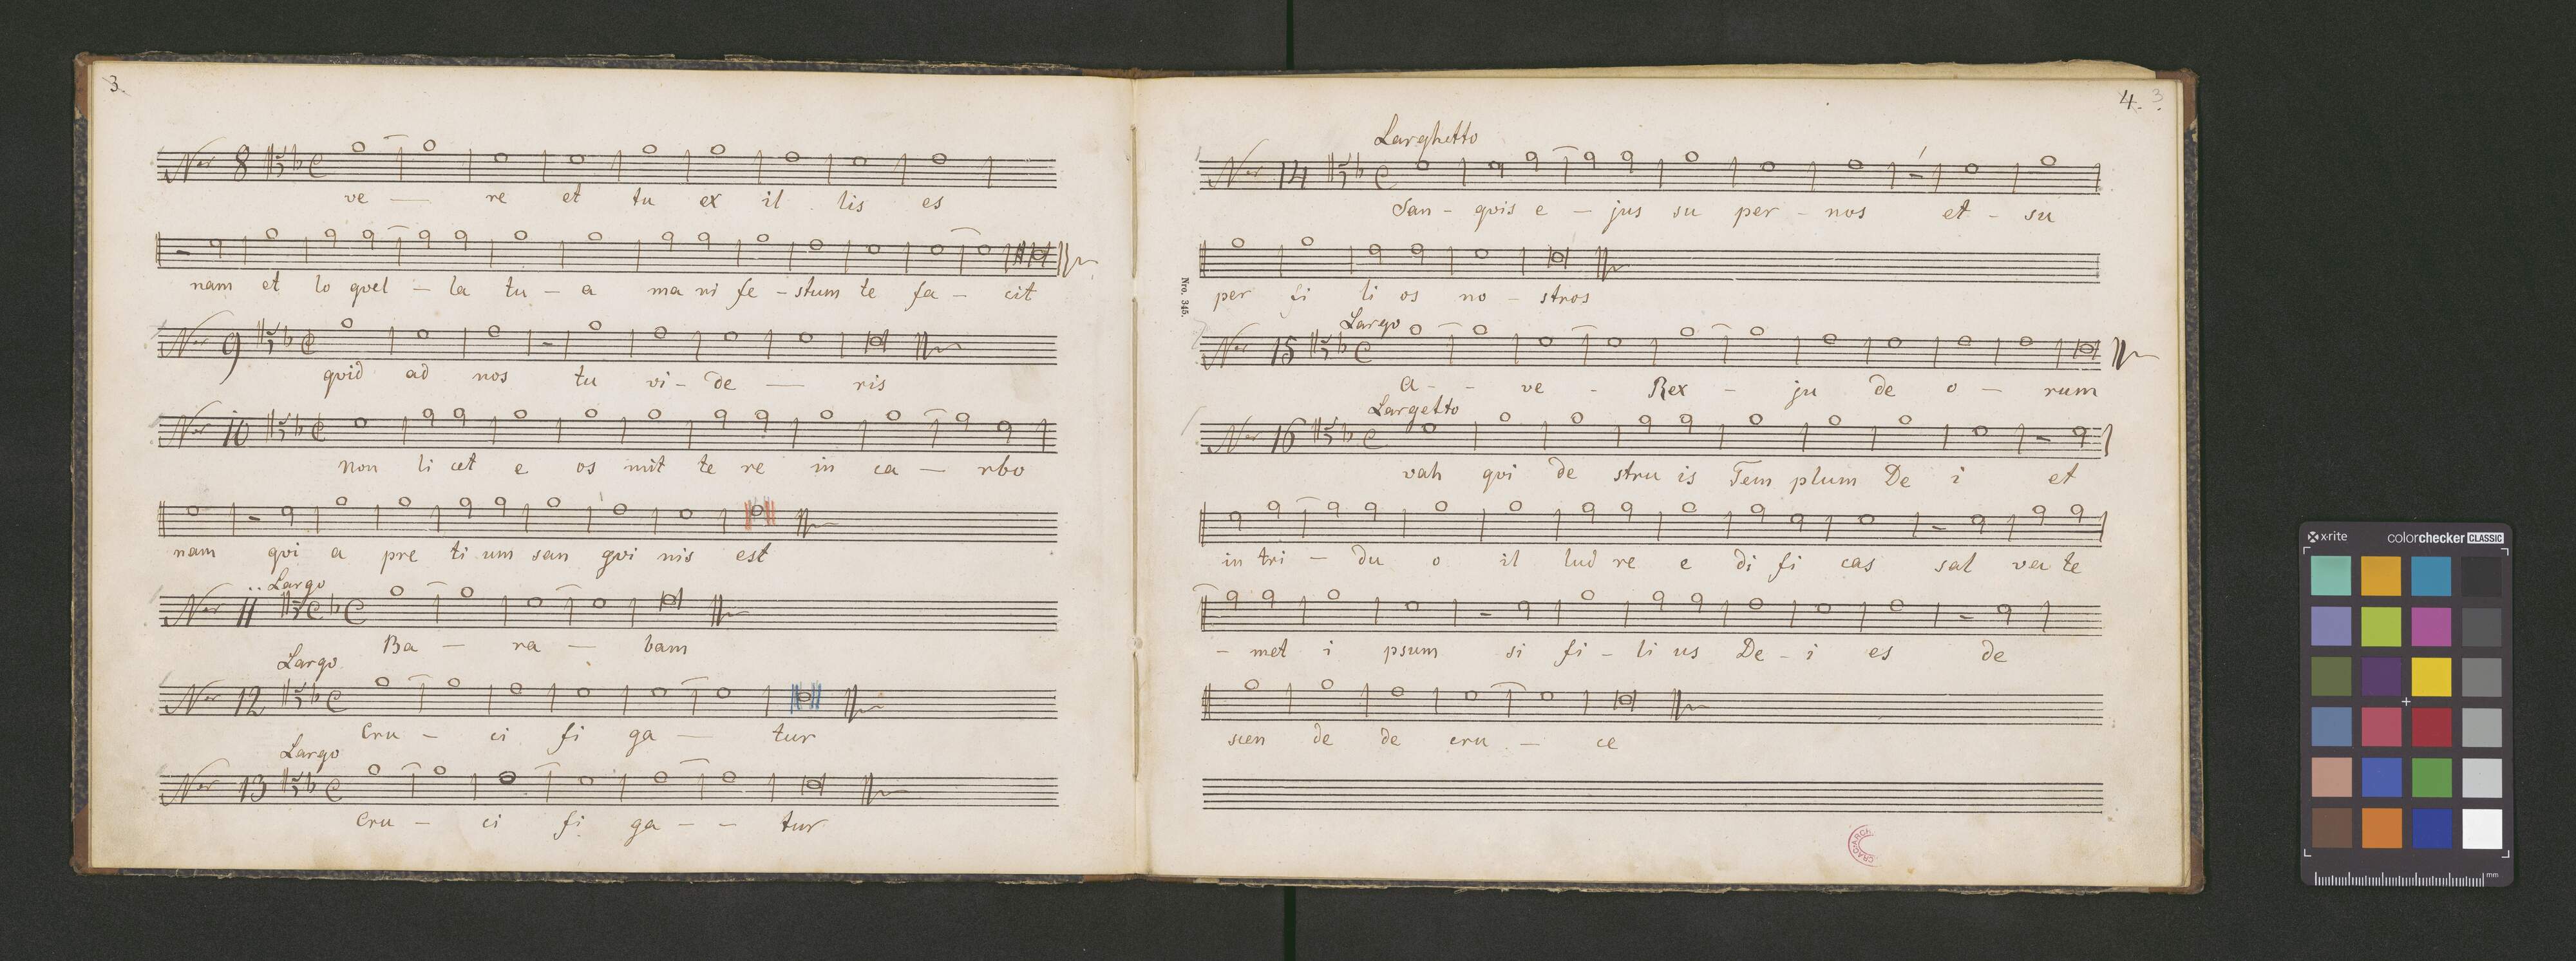 3
Nro 8
ve — re et tu ex il lis es
nam et lo qvel – la tu – a ma ni fe – stum te fa – cit
Nro 9
qvid ad nos tu vi – de — ris
Nro 10
non li cet e os mit te re in ca — rbo
nam qvi a pre ti um san gvi nis est
Largo
Nro 11
Ba — ra — bam
Largo
Nro 12
Cru – ci fi ga — tur
Largo
Nro 13
Cru – ci fi ga – – tur
4. 3.
Larghetto
Nro 14
San – qvis e – jus su per – nos et – su
per fi li os no – stros
Nro. 345.
Largo
Nro 15
a – – ve – Rex – ju de o — rum
Largetto
Nro 16
vah qvi de stru is Tem plum De i et
in tri – du o il lud re e di fi cas sal va te
– met i psum si fi – li us De – i es de
scen de de cru – ce
x-rite colorchecker CLASSIC
mm